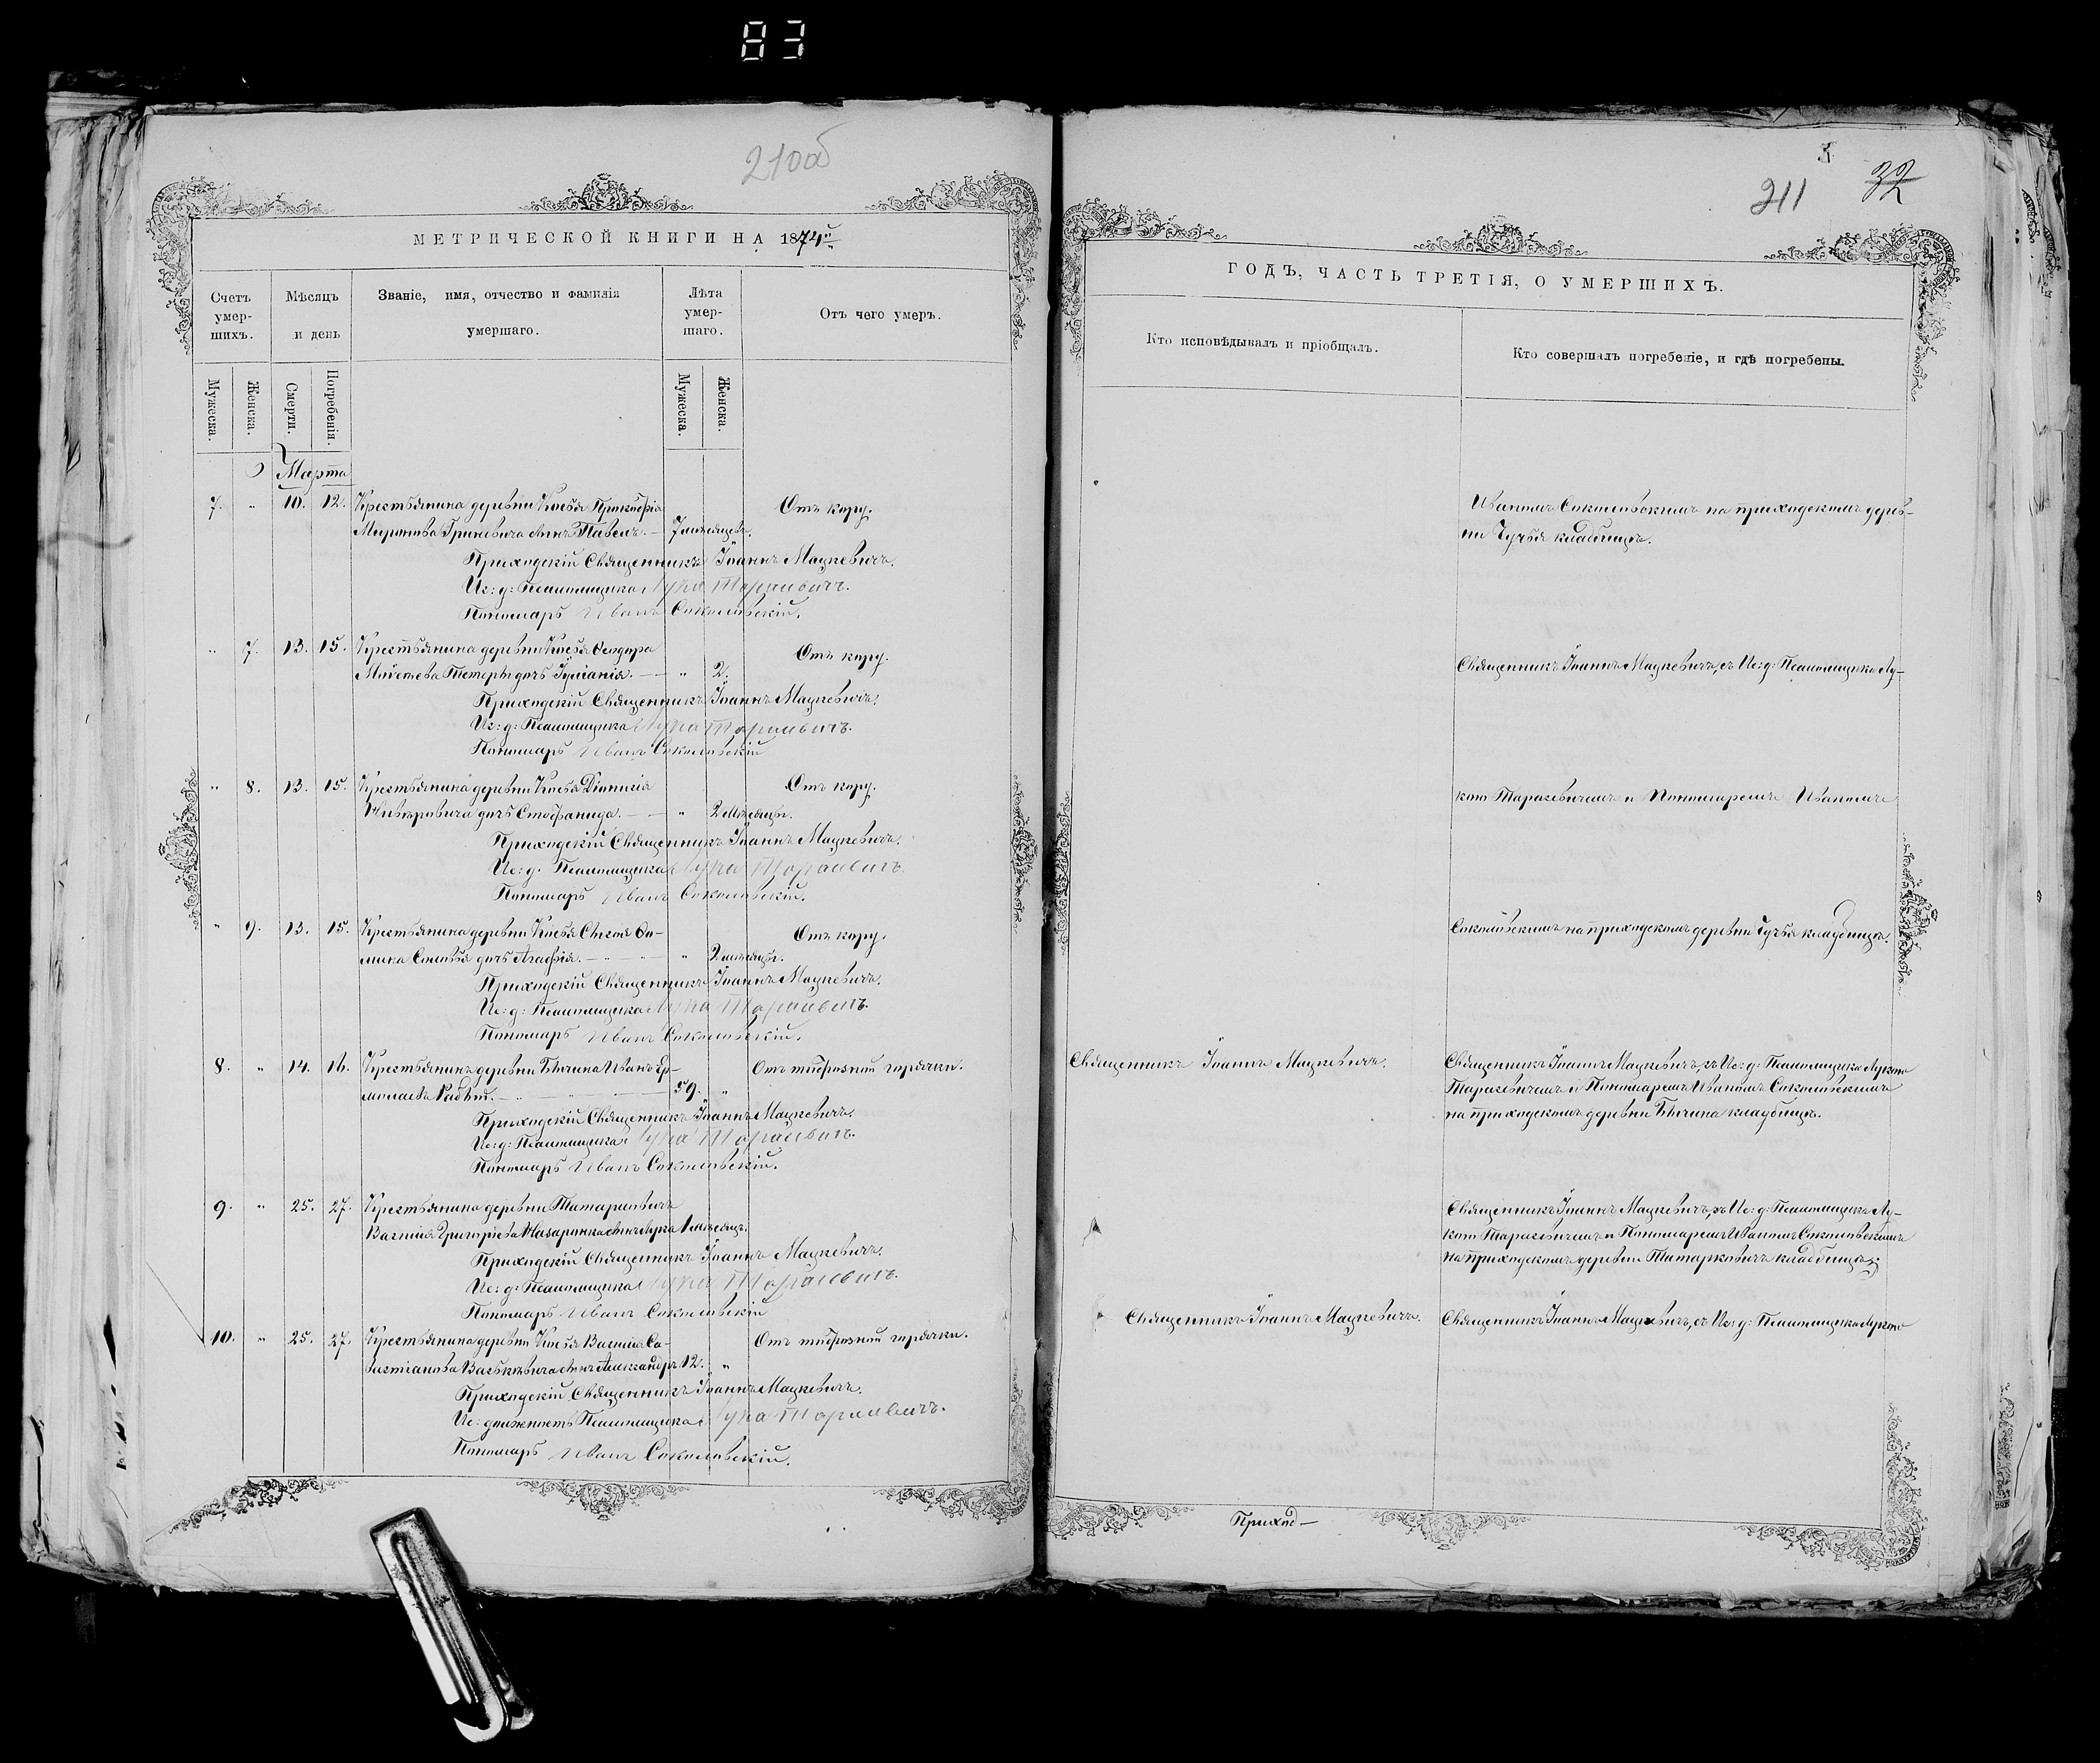 83
210об
МЕТРИЧЕСКОЙ КНИГИ НА 1874й
Счетъ умер-шихъ.
Мѣсяцъ и день
Званіе, имя, отчество и фамилія умершаго.
Лѣта умер-шаго.
Отъ чего умеръ.
Мужеска.
Женска.
Смерти.
Погребенія.
Мужеска.
Женска.
Марта
7. " 10. 12. Крестьянина деревни Прокофія Отъ кору.
Миронова Гриневича сынъ Павелъ. — 7 мѣсяцевъ.
Приходскій Священникъ Іоаннъ Мацкевичъ.
Ис: д: Псаломщика Лука Тарасевичъ.
Пономарь Иванъ Соколовскій.
" 7. 13. 15. Крестьянина деревни Ѳеодора Отъ кору.
дочь Іуліанія. — " 2.
Приходскій Священникъ Іоаннъ Мацкевичъ.
Ис: д: Псаломщика Лука Тарасевичъ.
Пономарь Иванъ Соколовскій
" 8. 13. 15. Крестьянина деревни Діонисія Отъ кору.
дочь Стефанида. — " 2 мѣсяцы.
Приходскій Священникъ Іоаннъ Мацкевичъ.
Ис: д. Псаломщика Лука Тарасевичъ.
Пономарь Иванъ Соколовскій.
" 9. 13. 15. Крестьянина деревни Отъ кору.
дочь Агафія. — " 2 мѣсяцы.
Приходскій Священникъ Іоаннъ Мацкевичъ.
Ис: д: Псаломщика Лука Тарасевичъ.
Пономарь Иванъ Соколовскій.
8. " 14. 16. Крестьянинъ деревни Бычина Иванъ Ер- Отъ тифозной горячки.
молаевъ — 59. "
Приходскій Священникъ Іоаннъ Мацкевичъ.
Ис: д: Псаломщика Лука Тарасевичъ.
Пономарь Иванъ Соколовскій.
9. " 25. 27. Крестьянина деревни Татарковичъ
Василія Григоріева Назаринка сынъ Лука 1 мѣсяцъ.
Приходскій Священникъ Іоаннъ Мацкевичъ.
Ис: д: Псаломщика Лука Тарасевичъ.
Пономарь Иванъ Соколовскій
10. " 25. 27. Крестьянина деревни Василія Се- Отъ тифозной горячки.
вастіанова Васькевича сынъ Александръ 12. "
Приходскій Священникъ Іоаннъ Мацкевичъ.
Ис: должность Псаломщика Лука Тарасевичъ.
Пономарь Иванъ Соколовскій.
211 32
ГОДЪ, ЧАСТЬ ТРЕТІЯ, О УМЕРШИХЪ.
Кто исповѣдывалъ и пріобщалъ.
Кто совершалъ погребеніе, и гдѣ погребены.
Иваномъ Соколовскимъ на приходскомъ дерев-
ни кладбищѣ.
Священникъ Іоаннъ Мацкевичъ, съ Ис: д: Псаломщика Лу-
кою Тарасевичемъ и Пономаремъ Иваномъ
Соколовскимъ на приходскомъ деревни кладбищѣ.
Священникъ Іоаннъ Мацкевичъ.
Священникъ Іоаннъ Мацкевичъ, съ Ис: д: Псаломщика Лукою
Тарасевичемъ и Пономаремъ Иваномъ Соколовскимъ
на приходскомъ деревни Бычина кладбищѣ.
Священникъ Іоаннъ Мацкевичъ, съ Ис: д: Псаломщика Лу-
кою Тарасевичемъ и Пономаремъ Иваномъ Соколовскимъ
на приходскомъ деревни Татарковичъ кладбищѣ.
Священникъ Іоаннъ Мацкевичъ.
Священникъ Іоаннъ Мацкевичъ, съ Ис: д: Псаломщика Лукою
Приход-